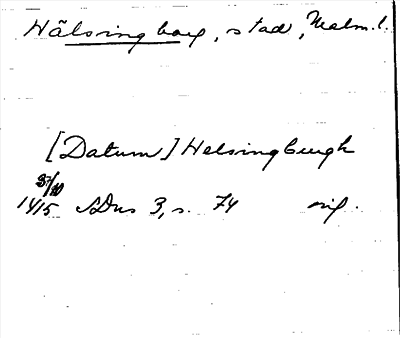 Hälsingborg, stad, Malm.l.
[Datum] Helsingburgh
1415 SDns 3, s. 74 orig.